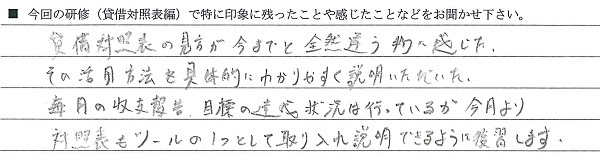 ■ 今回の研修（貸借対照表編）で特に印象に残ったことや感じたことなどをお聞かせ下さい。
貸借対照表の見方が今までと全然違う物に感じた.
その活用方法を具体的にわかりやすく説明いただいた.
毎月の収支報告、目標の達成状況は行っているが今月より
対照表もツールの1つとして取り入れ説明できるように復習します.